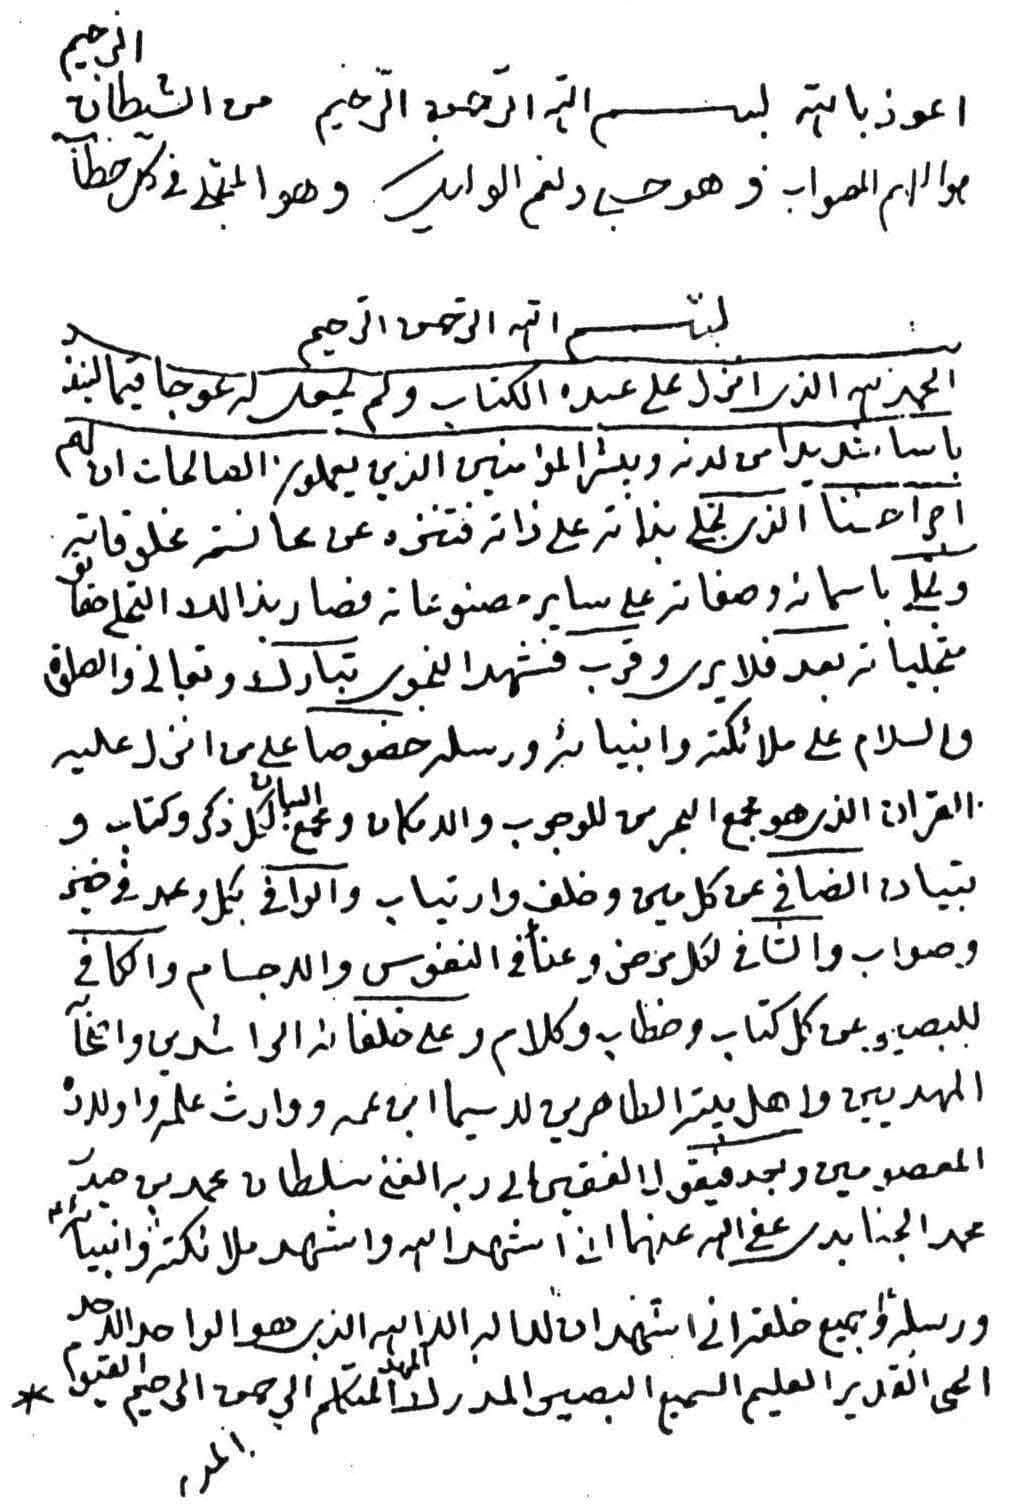 الرجيم
اعوذ بالله بسم الله الرّحمن الرّحيم من الشيطان
هو الملهم للصواب و هو حسبى و نعم الوكيل و هو المتجلى فى كلّ خطاب
بسم الله الرّحمن الرّحيم
الحمد لله الذى انزل على عبده الكتاب و لم يجعل له عوجا قيما لينذر
باسا شديدا من لدنه و يبشر المؤمنين الذين يعملون الصالحات ان لهم
اجرا حسنا الذى تجلى بذاته على ذاته فتنزه عن مجانسة مخلوقاته
و تجلى باسمائه و صفاته على ساير مصنوعاته فصار بذالك التجلى
متجلياته بعد فلا يرى و قرب فشهد النجوى تبارك و تعالى و الصلوة
و السلام على ملائكته و انبيائه و رسله خصوصا على من انزل عليه
القران الذى هو مجمع البحرين للوجوب و الامكان و مجمع البيان لكل ذكر و كتاب و
تبيان الصافى عن كل مين و خلف و ارتياب و الوافى بكل وعد فى خير
و صواب و الشافى لكل مرض و عناء فى النفوس و الاجسام و الكافى
للبصير عن كل كتاب و خطاب و كلام و على خلفائه الراشدين و
المهديين و اهل بيته الطاهرين لاسيما ابن عمه و وارث علمه و اولاده
المعصومين و بعد فيقول الفقير الى ربه الغنى سلطان محمد بن حيدر
محمد الجنابدى عفى الله عنهما انى اشهد الله و اشهد ملائكته و انبيائه
و رسله و جميع خلقه انى اشهد ان لا اله الا الله الذى هو الواحد الاحد
الحى القدير العليم السميع البصير المدرك المتكلم الرحمن الرحيم القيوم